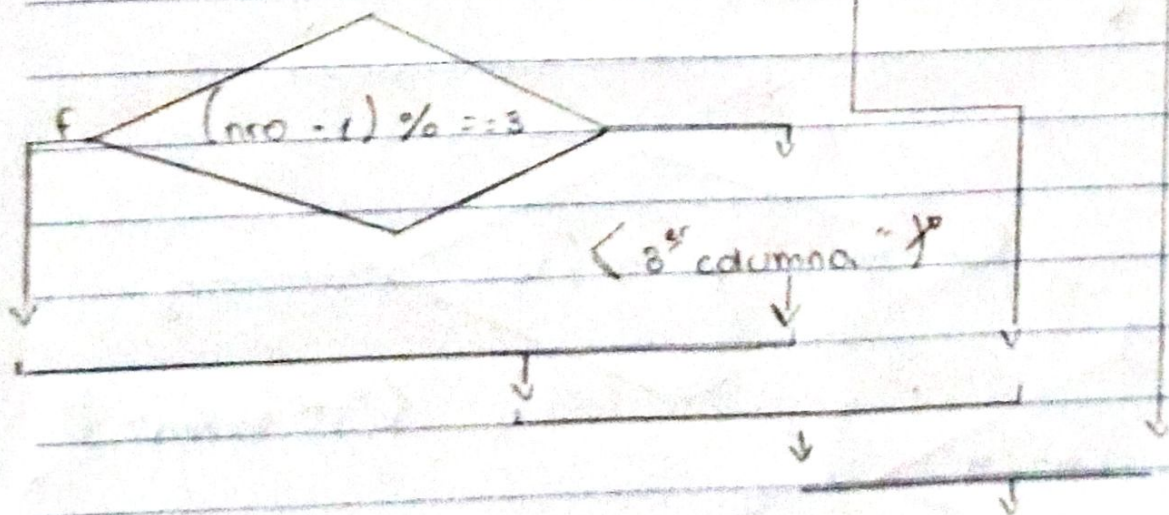 F (nro - 1) % == 3
< 3er columna " >